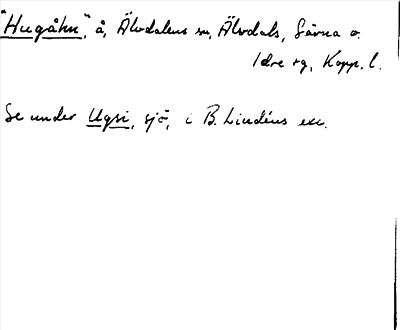 "Hugåhn", å, Älvdalens sn, Älvdals, Särna o.
Idre tg, Kopp. l.
Se under Ugsi, sjö, i B. Lindéns exc.